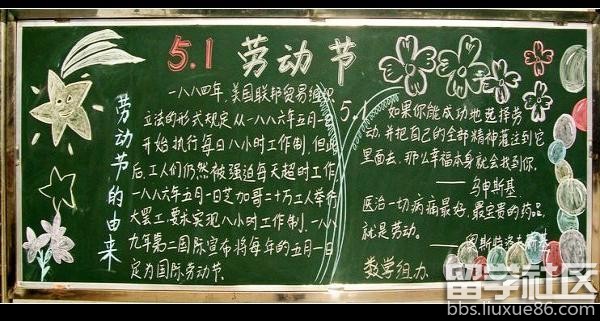 5.1 劳动节
劳动节的由来
一八八四年,美国联邦贸易组织
立法的形式规定从一八八六年五月一日
开始执行每日八小时工作制,但此
后,工人们仍然被强迫每天超时工作.
一八八六年五月一日芝加哥二十万工人举行
大罢工要求实现八小时工作制.一八八
九年第二国际宣布将每年的五月一日
定为国际劳动节.
5.1
如果你能成功地选择劳
动,并把自己的全部精神灌注到它
里面去,那么幸福本身就会找到你.
——乌申斯基
医治一切病痛最好,最宝贵的药品,
就是劳动.
——奥斯特洛夫斯基
数学组办
留学社区
bbs.liuxue86.com